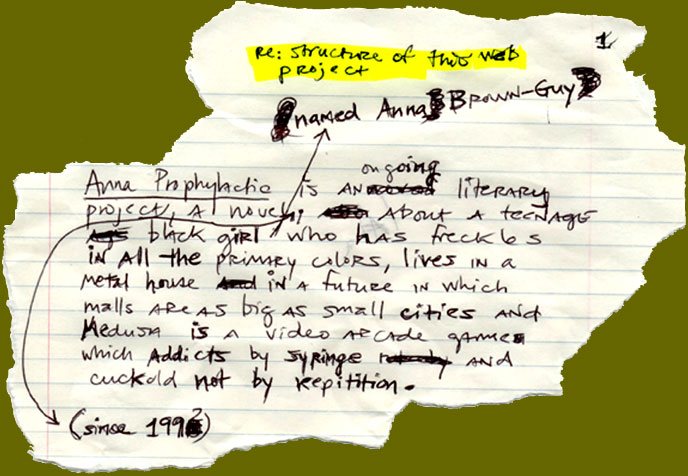 1.
re: structure of this web
project
named Anna Brown-Guy
ongoing
Anna Prophylactic is an literary
project, a novel, about a teenage
black girl who has freckles
in all the primary colors, lives in a
metal house in a future in which
malls are as big as small cities and
Medusa is a video arcade game
which addicts by syringe and
cuckold not by repitition.
(since 1992)